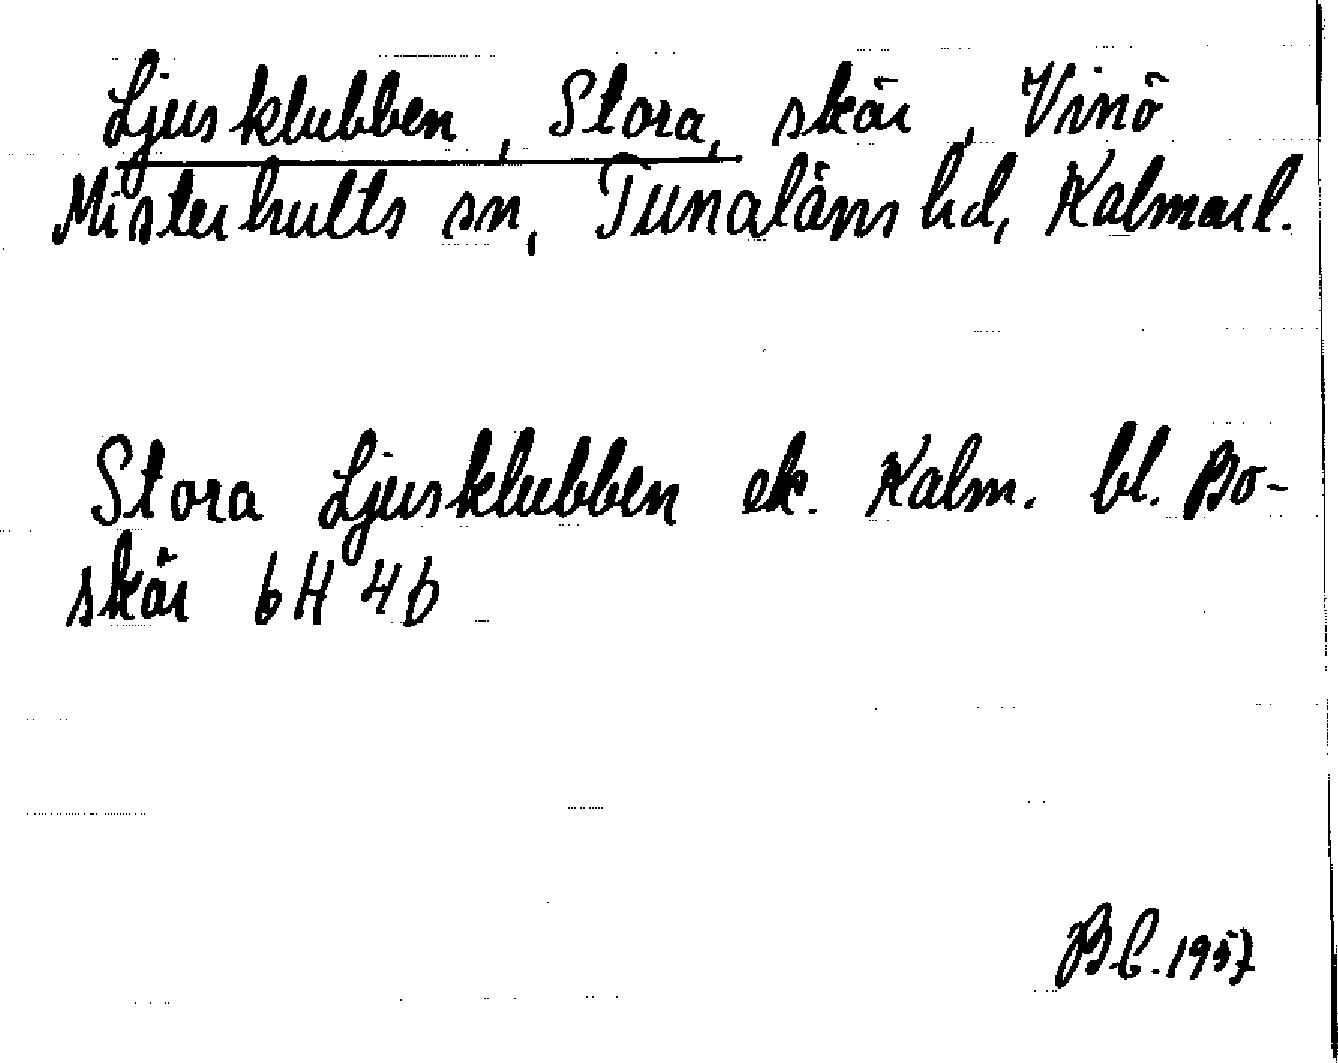 Ljusklubben, Stora, skär, Vinö
Misterhults sn, Tunaläns hd, Kalmar l.
Stora Ljusklubben ek. Kalm. bl. Bo-
skär 6H 4b
B C. 1957